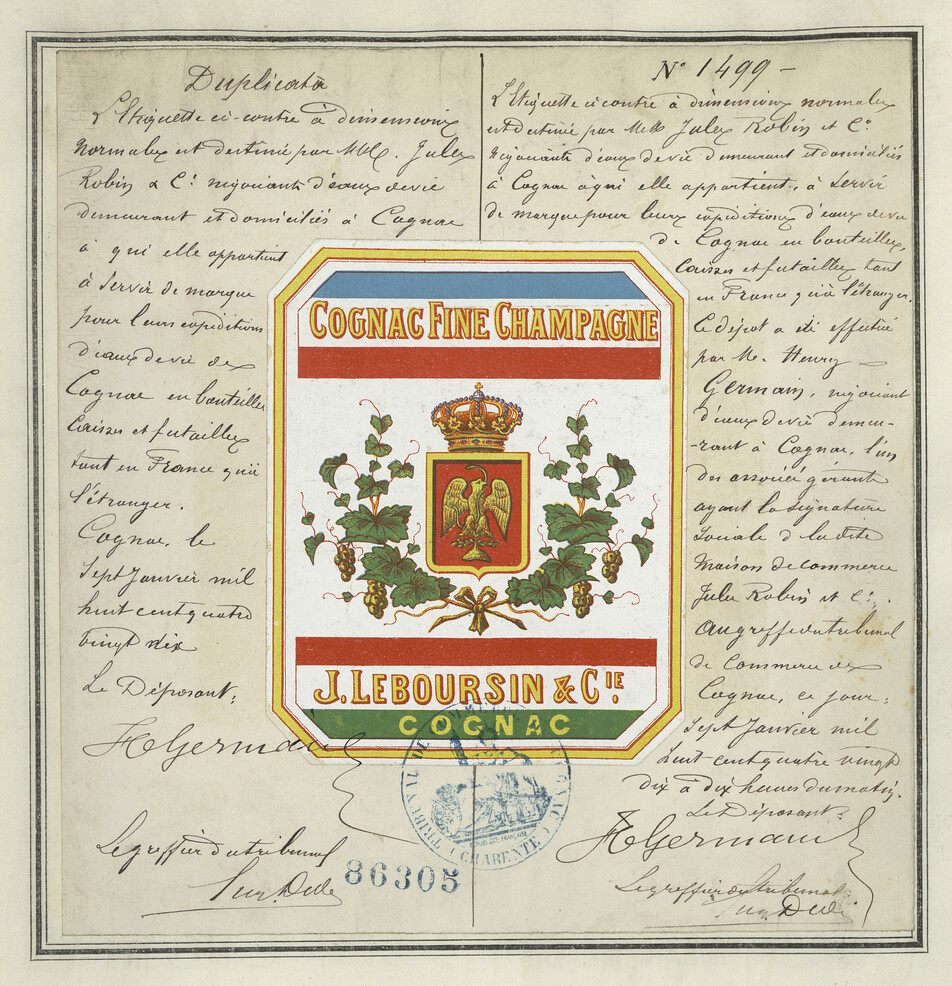 Duplicata
L'Etiquette ci-contre à dimensions
normales est destinée par MM. Jules
Robin & Cie négociants d'eaux de vie
demeurant et domiciliés à Cognac
à qui elle appartient
à servir de marque
pour leurs expéditions
d'eaux de vie de
Cognac en bouteilles
caisses et futailles
tant en France qu'à
l'étranger.
Cognac, le
Sept Janvier mil
huit cent quatre
vingt dix
Le Déposant:
HGermain
Le greffier du tribunal
N° 1499 -
L'Etiquette ci contre à dimensions normales
est destinée par MM Jules Robin et Cie
négociants d'eaux de vie demeurant et domiciliés
à Cognac à qui elle appartient, à servir
de marque pour leurs expéditions d'eaux de vie
de Cognac en bouteilles,
caisses et futailles tant
en France qu'à l'étranger.
Le dépôt a été effectué
par M. Henry
Germain, négociant
d'eaux de vie demeu-
-rant à Cognac, l'un
des associés gérants
ayant la signature
sociale de la dite
Maison de commerce
Jules Robin et Cie.
au greffe du tribunal
de Commerce de
Cognac, ce jour:
Sept Janvier mil
huit cent quatre vingt
dix à dix heures du matin.
Le Déposant:
HGermain
Le greffier du tribunal
COGNAC FINE CHAMPAGNE
J. LEBOURSIN & CIE.
COGNAC
TRIBUNAL DE COMMERCE
COGNAC
CHARENTE
86305